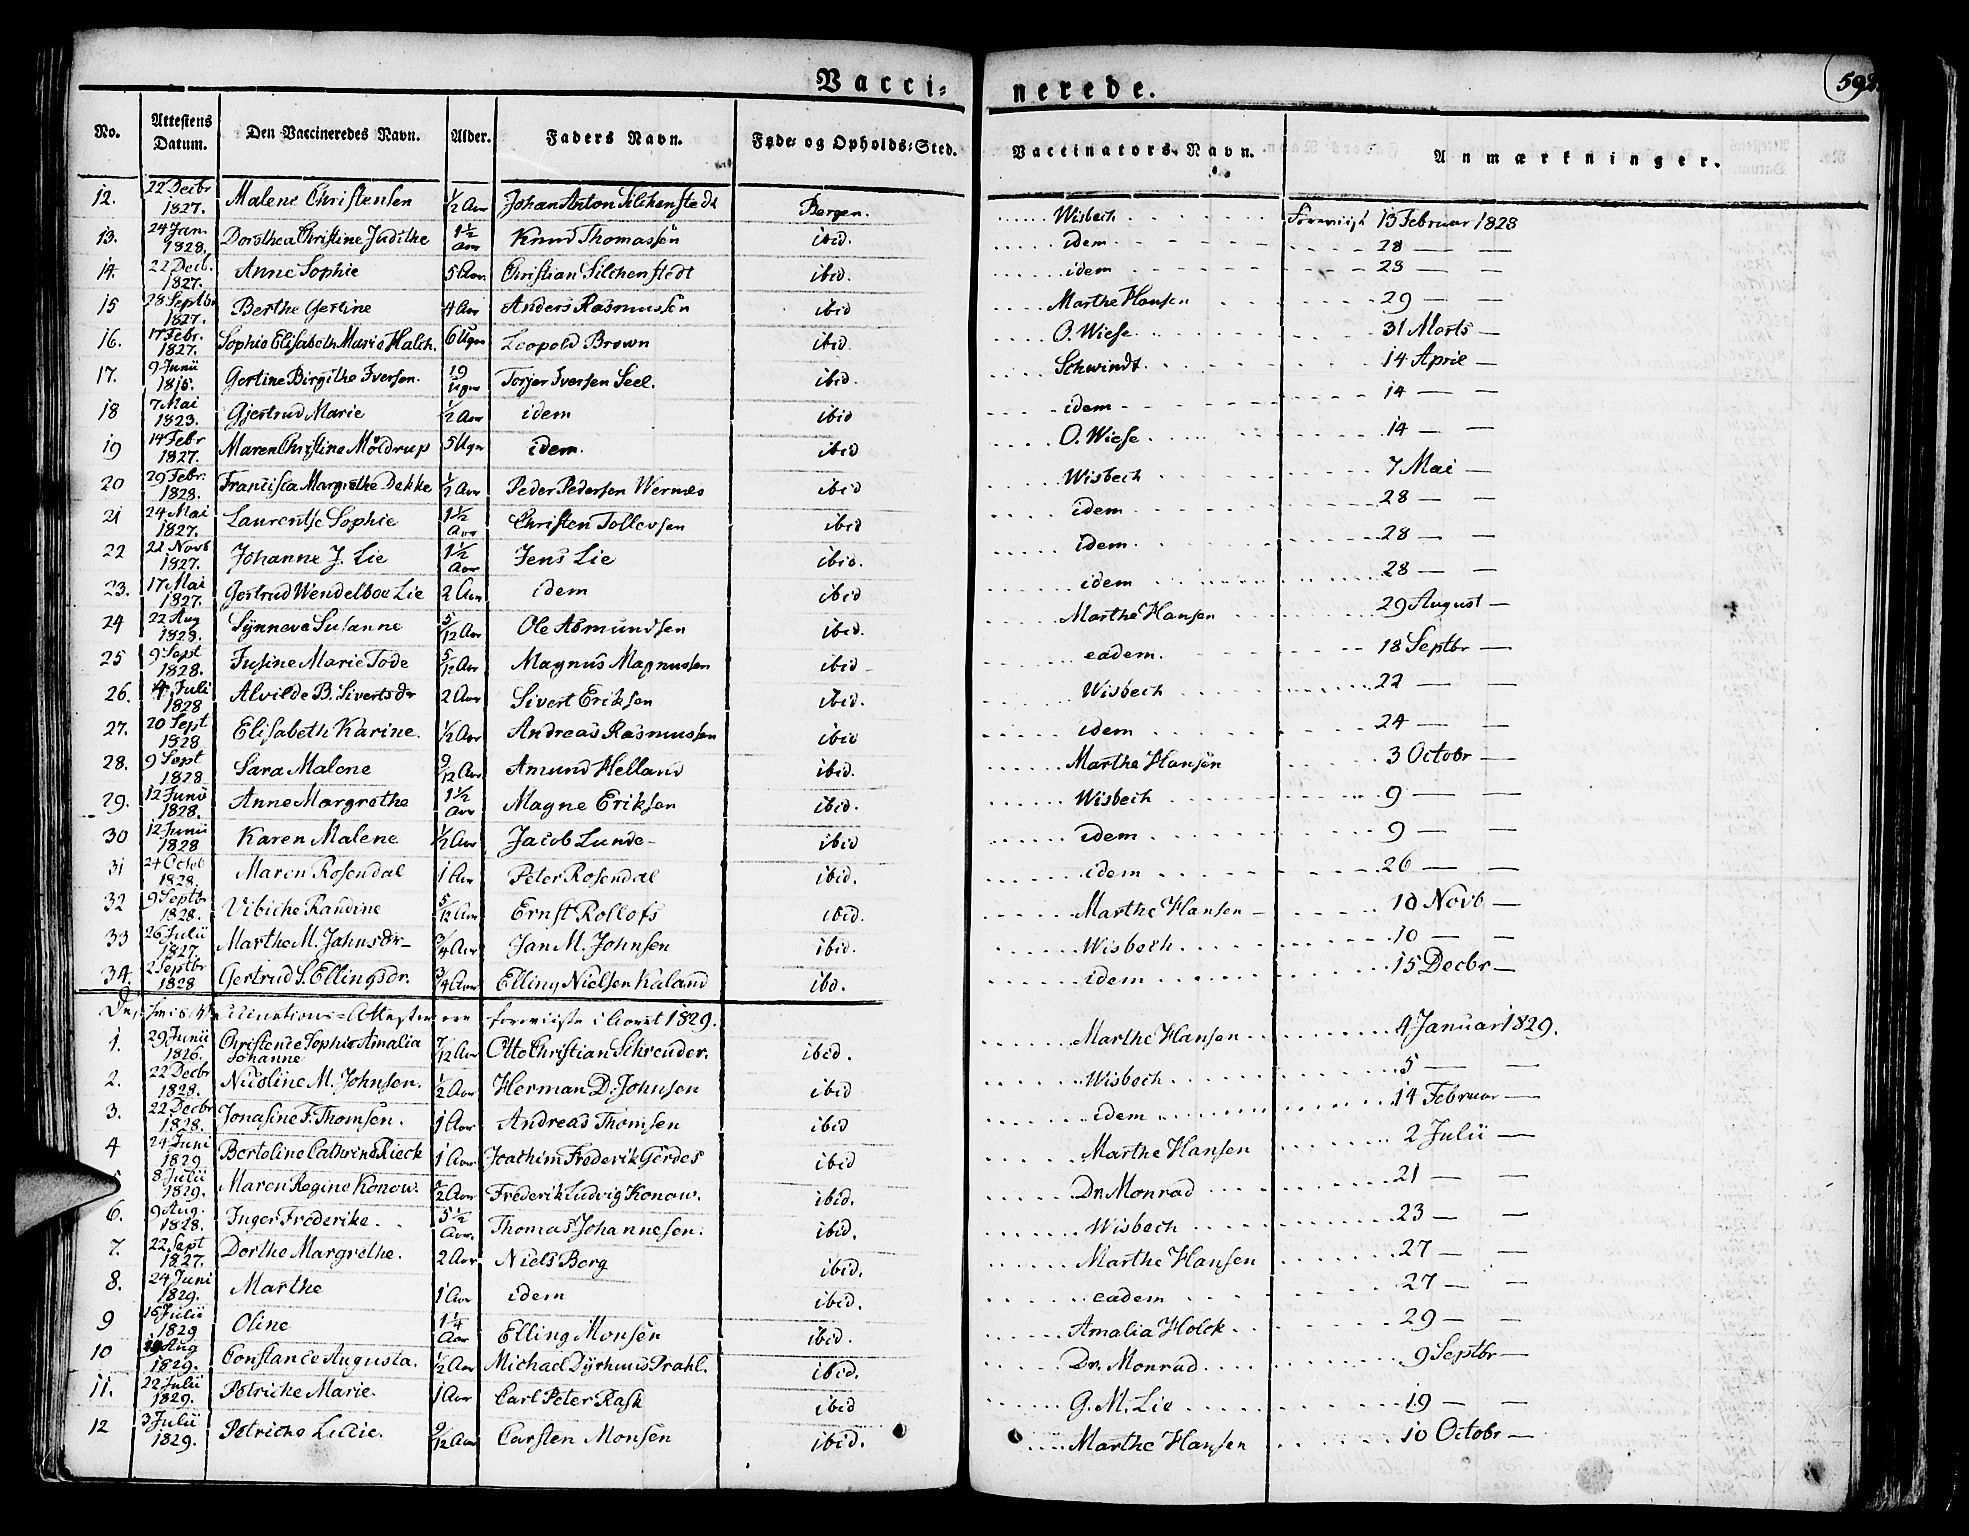 Vacci=nerede.
598.
No. Attestens Datum. Den Vaccineredes Navn. Alder. Faders Navn. Føde- og Opholds-Sted. Vaccinators Navn. Anmærkninger.
12. 22 Decbr 1827. Malene Christensen 1/2 Aar Johan Anton Silchenstedt Bergen. Wisbech Foreviist 13 Februar 1828
13. 24 Jan. 1828. Dorothea Christine Judithe 1 1/2 Aar Knud Thomassen ibid. idem 28 — —
14. 22 Decb. 1827. Anne Sophie 5 Aar Christian Silchenstedt ibid. idem 28 — —
15 28 Septbr 1827. Berthe Gertine 4 Aar Anders Rasmussen ibid Marthe Hansen 29 — —
16. 17 Febr. 1827. Sophie Elisabeth Marie Halch. 6 Ugr Leopold Brown ibid. O. Wiese 31 Marts —
17. 9 Junii 1816. Gertine Birgithe Iversen. 19 Ugr Torjer Iversen Seel. ibid. Schwindt. 14 April —
18 7 Mai 1823. Gjertrud Marie 1/2 Aar idem ibid idem 14 — —
19 14 Febr 1827. Maren Christine Møldrup 5 Ugr idem. ibid O. Wiese 14 — —
20 29 Febr. 1828. Francisca Margrethe Dekke 1/2 Aar Peder Pedersen Wernes ibid Wisbech 7 Mai —
21 24 Mai 1827. Laurentse Sophie 1 1/2 Aar Christen Tollevsen ibid idem 28 — —
22 22 Novb 1827. Johanne J. Lie 1 1/2 Aar Jens Lie ibid. idem 28 — —
23. 17 Mai 1827. Gertrud Wendelboe Lie 2 Aar idem ibid idem 28 — —
24 22 Aug 1828. Synneve Susanne 5/12 Aar Ole Asmundsen ibid. Marthe Hansen 29 August —
25 9 Sept 1828. Jusine Marie Tode 5/12 Aar Magnus Magnussen ibid eadem. 18 Septbr —
26. 4 Juli 1828 Alvilde B. Sivertsdr 2 Aar Sivert Eriksen ibid. Wisbech 22 — —
27. 20 Sept 1828 Elisabeth Karine. 1/2 Aar Andreas Rasmussen ibid idem 24 — —
28. 9 Sept 1828 Sara Malene 9/12 Aar Amund Helland ibid. Marthe Hansen 3 Octobr —
29. 12 Junii 1828. Anne Margrethe 1 1/2 Aar Magne Eriksen ibid. Wisbech 9 — —
30 12 Junii 1828 Karen Malene 1/2 Aar Jacob Lunde ibid idem 9 — —
31 24 Octob 1828. Maren Rosendal 1 Aar Peter Rosendal ibid. idem 26 — —
32 9 Septbr 1828. Vibiche Randine 5/12 Aar Ernst Rollofs ibid. Marthe Hansen 10 Novb —
33 26 Julii 1827. Marthe M. Jahnsdr 3/4 Aar Jan M. Johnsen ibid. Wisbech 10 — —
34. 2 Septbr 1828 Gertrud S. Ellingsdr. 3/4 Aar Elling Nielsen Kaland ibd. idem 15 Decbr —
foreviiste i Aaret 1829.
1. 29 Junii 1826. Christence Sophie Amalia Johanne 7/12 Aar Otto Christian Schreuder. ibid. Marthe Hansen 4 Januar 1829.
2. 22 Decbr 1828. Nicoline M. Johnsen. 1/2 Aar Herman D. Johnsen ibid Wisbech 5 — —
3. 22 Decbr 1828. Jonasine F. Thomsen. 1 Aar Andreas Thomsen ibid idem 14 Februar —
4 24 Juni 1829 Bertoline Cathrine Rieck 1 Aar Joachim Frederik Gerdes ibid Marthe Hansen 2 Julii —
5 8 Julii 1829. Maren Regine Konow. 1/2 Aar Frederik Ludvig Konow. ibid. Dr. Monrad 21 — —
6. 9 Aug. 1828. Inger Frederike. 5 1/2 Aar. Thomas Johannesen. ibid. Wisbech 23 — —
7. 22 Sept 1827. Dorthe Margrethe. 2 Aar Niels Berg ibid. Marthe Hansen 27 — —
8. 24 Juni 1829. Marthe 1 Aar idem ibid. eadem 27 — —
9 16 Julii 1829 Oline 1 1/4 Aar Elling Monsen ibid. Amalia Holck 29 — —
10 Aug 1829. Constance Augusta. 1/2 Aar Michael Dyrhuus Prahl. ibid. Dr. Monrad 9 Septbr —
11. 22 Julii 1829. Petriche Marie. 1 Aar Carl Peter Rask ibid G. M. Lie 19 — —
12 3 Julii 1829. Petriche Lucie. 9/12 Aar Carsten Monsen ibid. Marthe Hansen 10 Octobr —